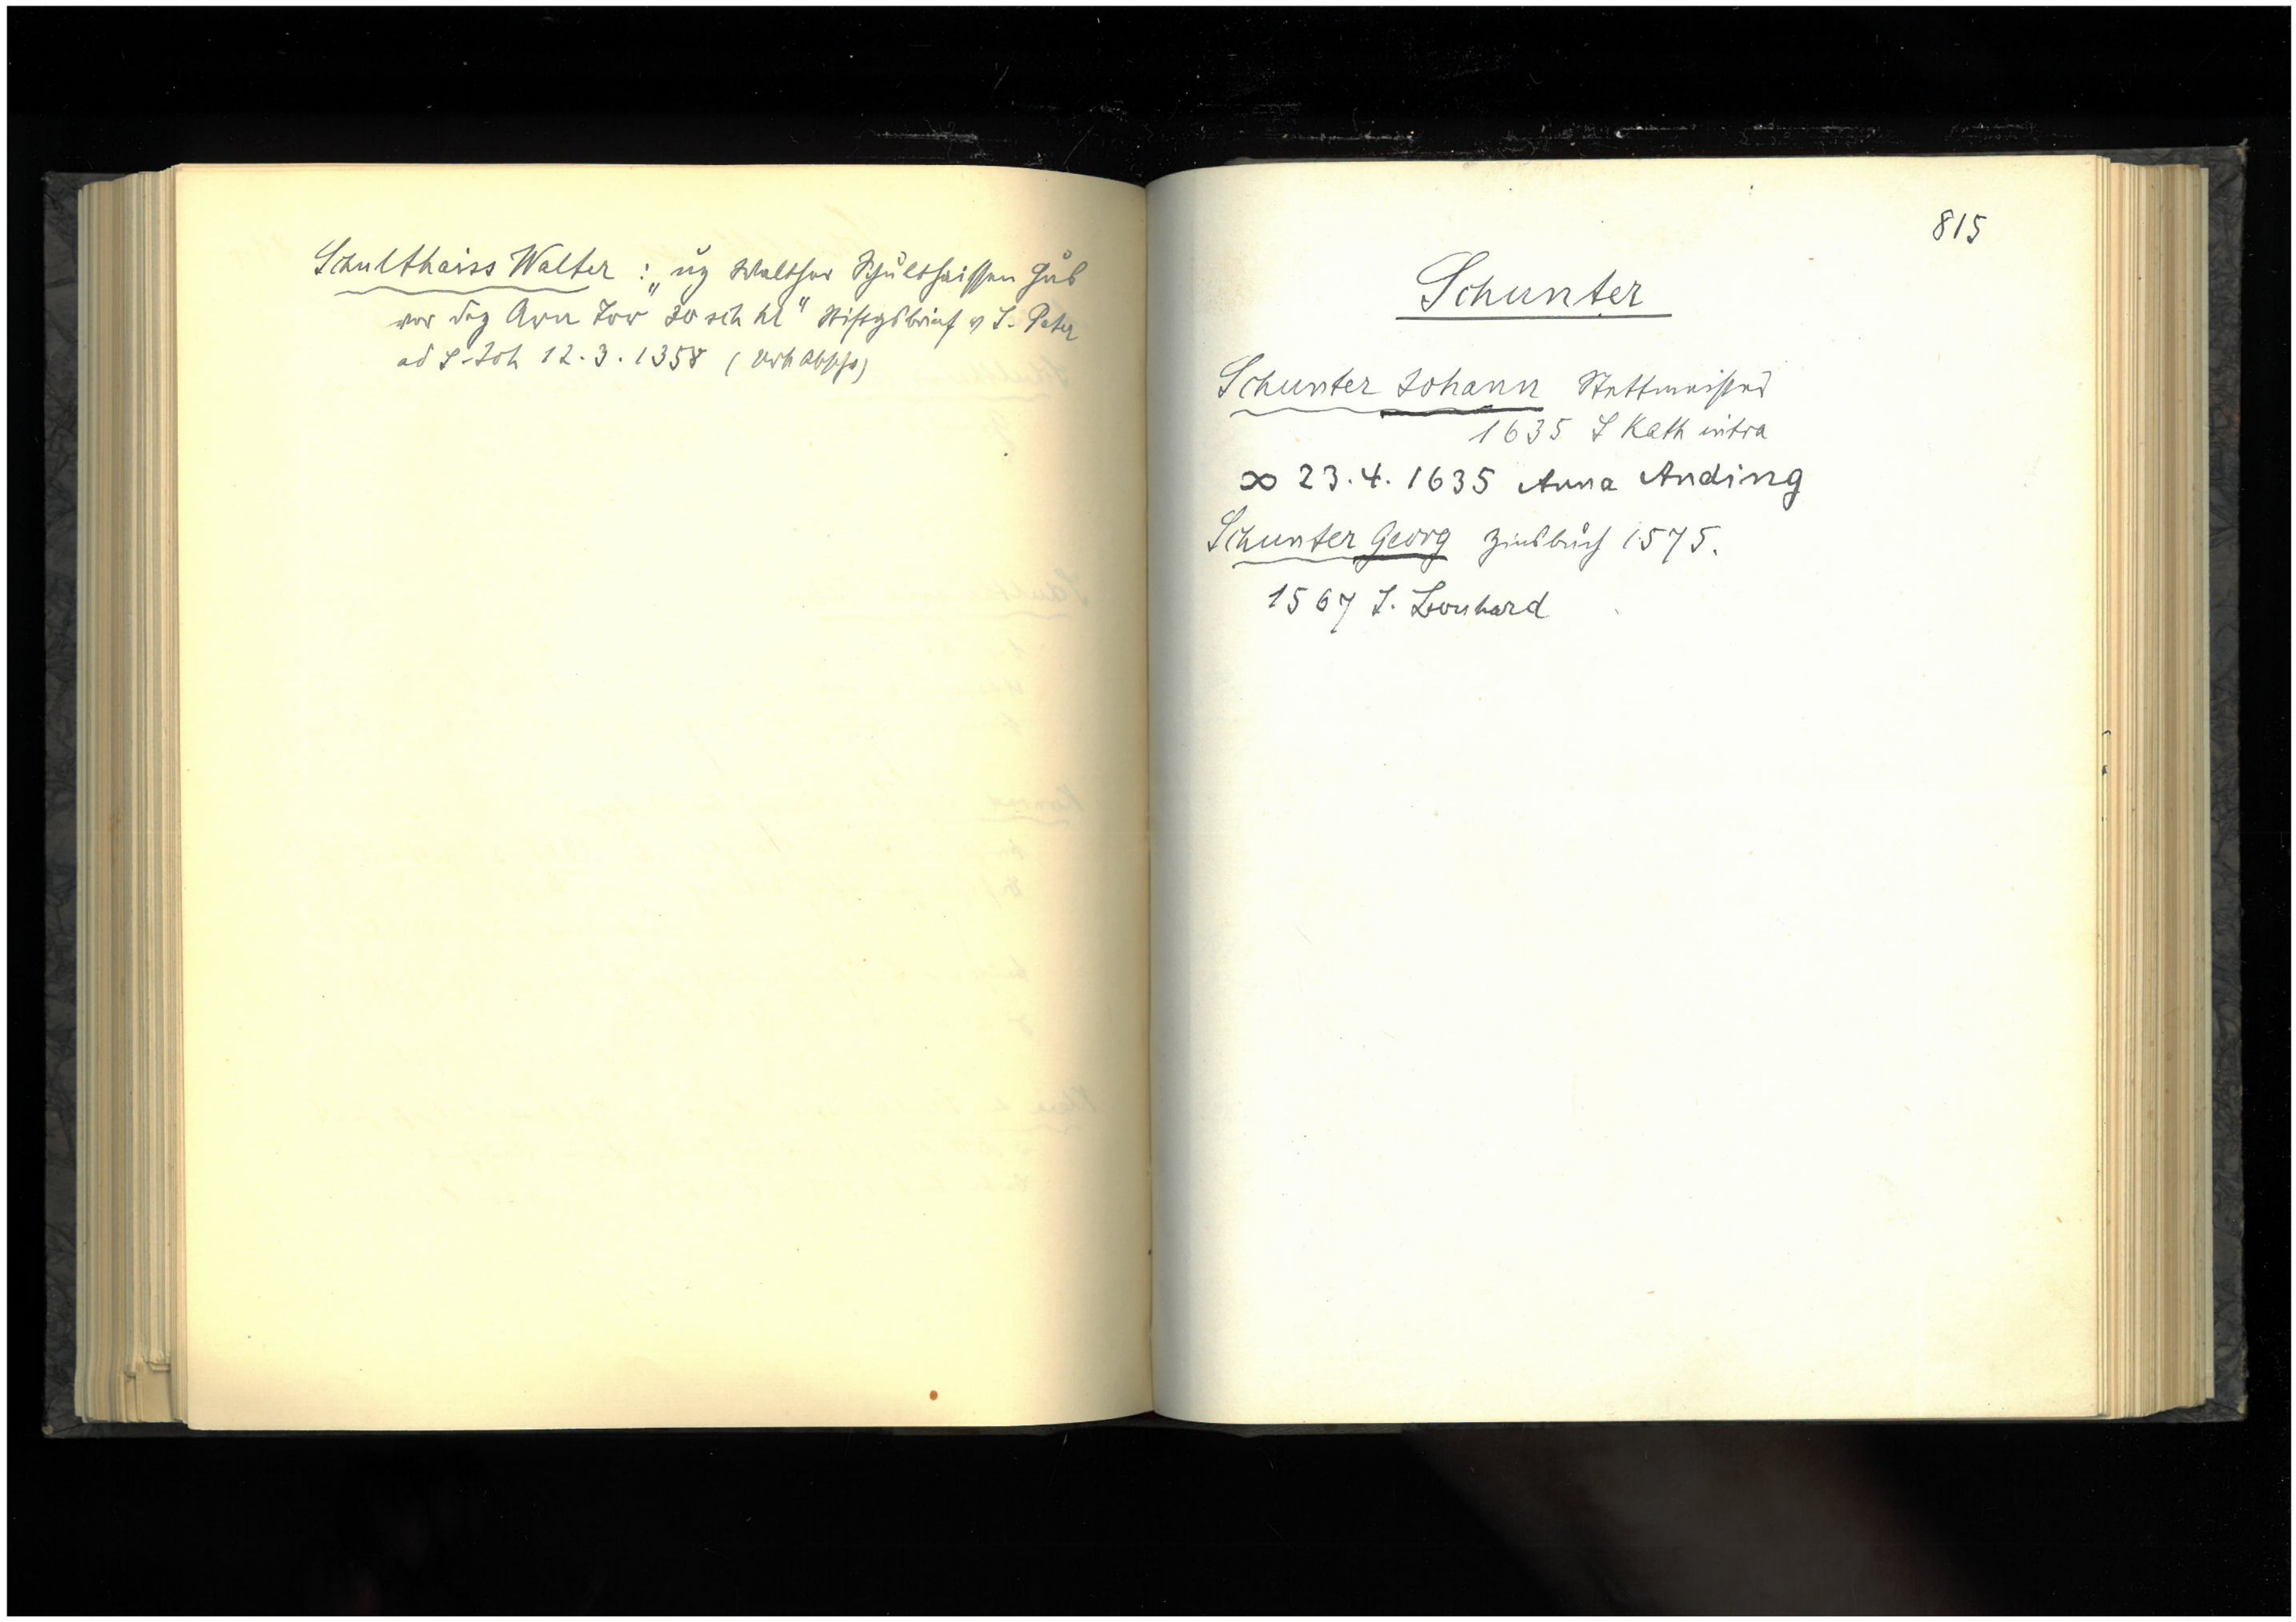 Schulthaiss Walter : „uz Walther Schulthaissen Hus
vor dez Arn Tor 30 sch hl" Stiftgsbrief v S. Peter
ad S. Joh 12.3.1358 (Urk Absch)
815
Schunter
Schunter Johann Stettmeister
1635 S Kath intra
∞ 23.4.1635 Anna Anding
Schunter Georg Zinsbuch 1575.
1567 S. Leonhard